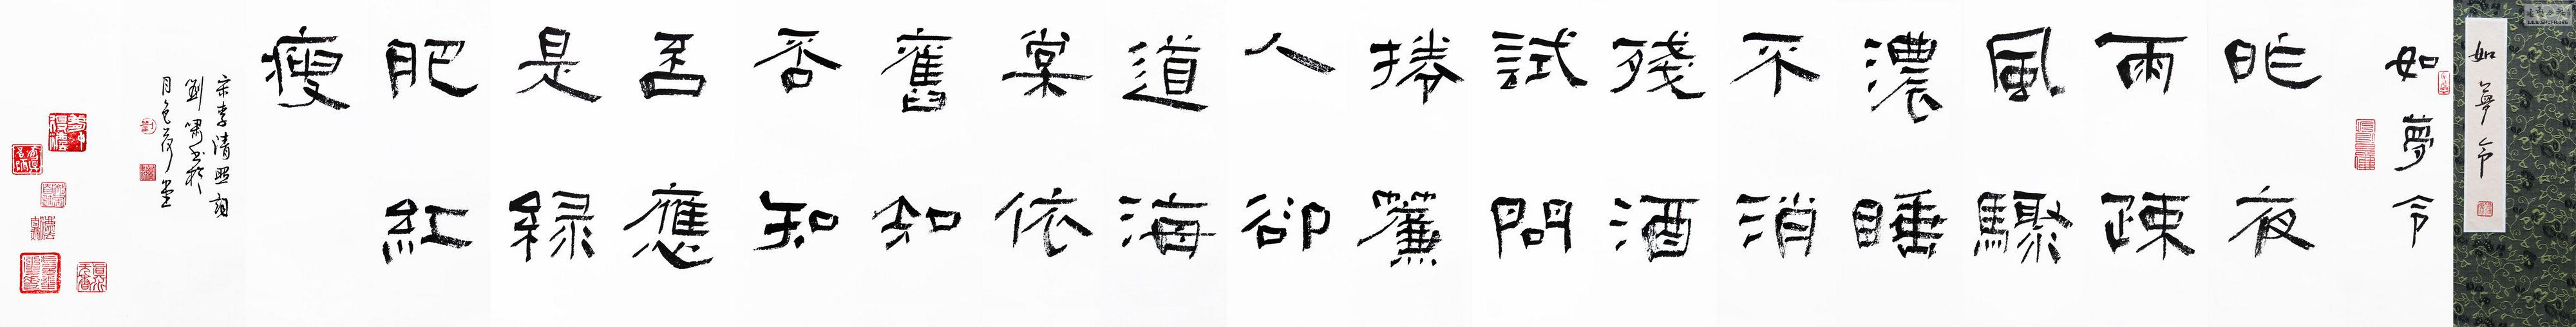 如夢令
如夢令
昨夜
雨疎
風驟
濃睡
不消
殘酒
試問
捲簾
人卻
道海
棠依
舊知
否知
否應
是緑
肥紅
瘦
宋李清照詞
劉嘯書於
月色荷堂